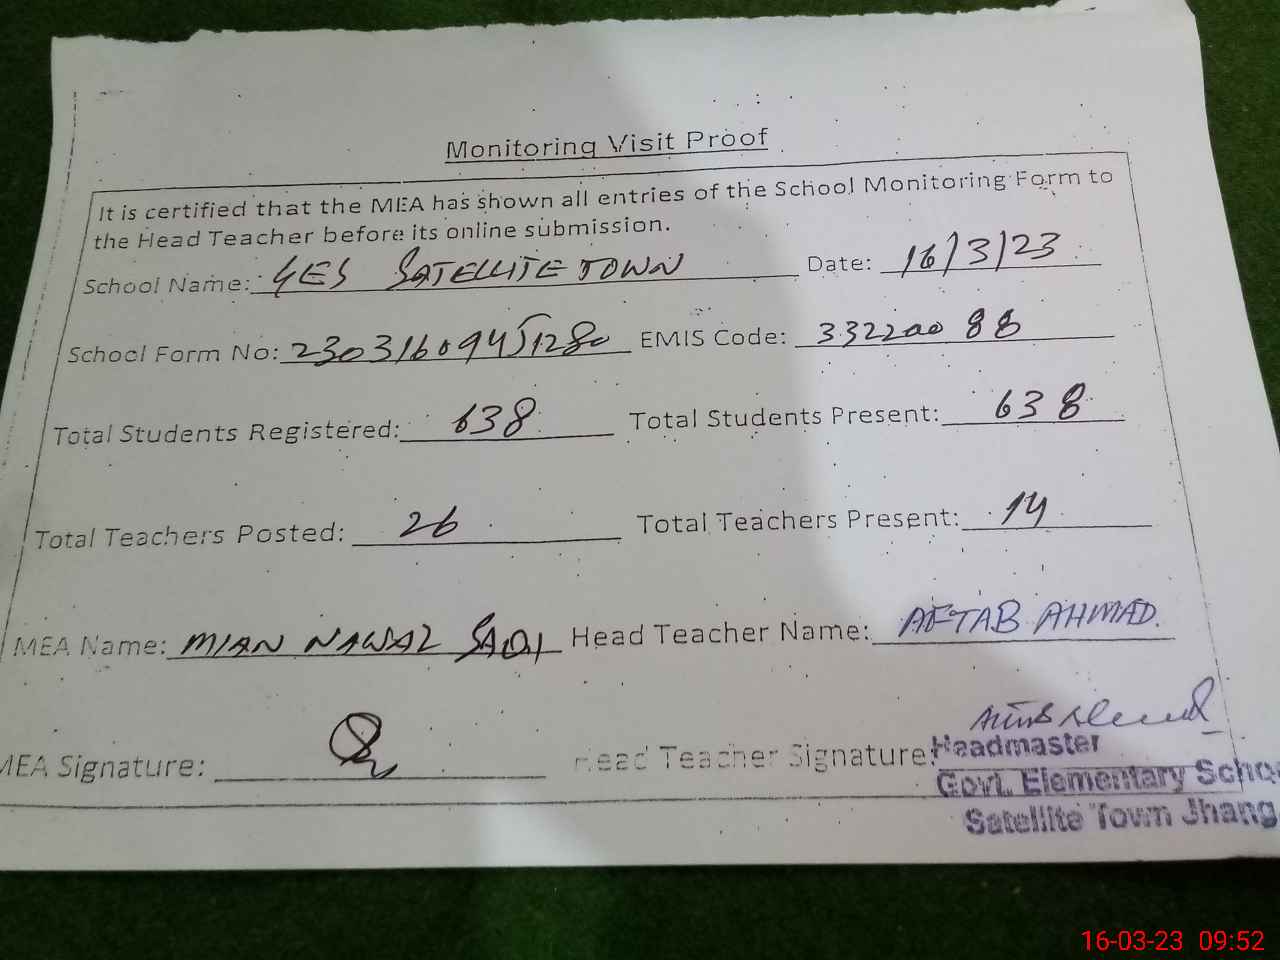 Monitoring Visit Proof
It is certified that the MEA has shown all entries of the School Monitoring Form to
the Head Teacher before its online submission.
School Name: GES SATELLITE TOWN Date: 16/3/23
School Form No: 23031609451280 EMIS Code: 33220088
Total Students Registered: 638 Total Students Present: 638
Total Teachers Posted: 26 Total Teachers Present: 14
MEA Name: MIAN NAWAZ SADI Head Teacher Name: AFTAB AHMAD.
MEA Signature: Head Teacher Signature:
Headmaster
Govt. Elementary Schoo
Satellite Town Jhang
16-03-23 09:52